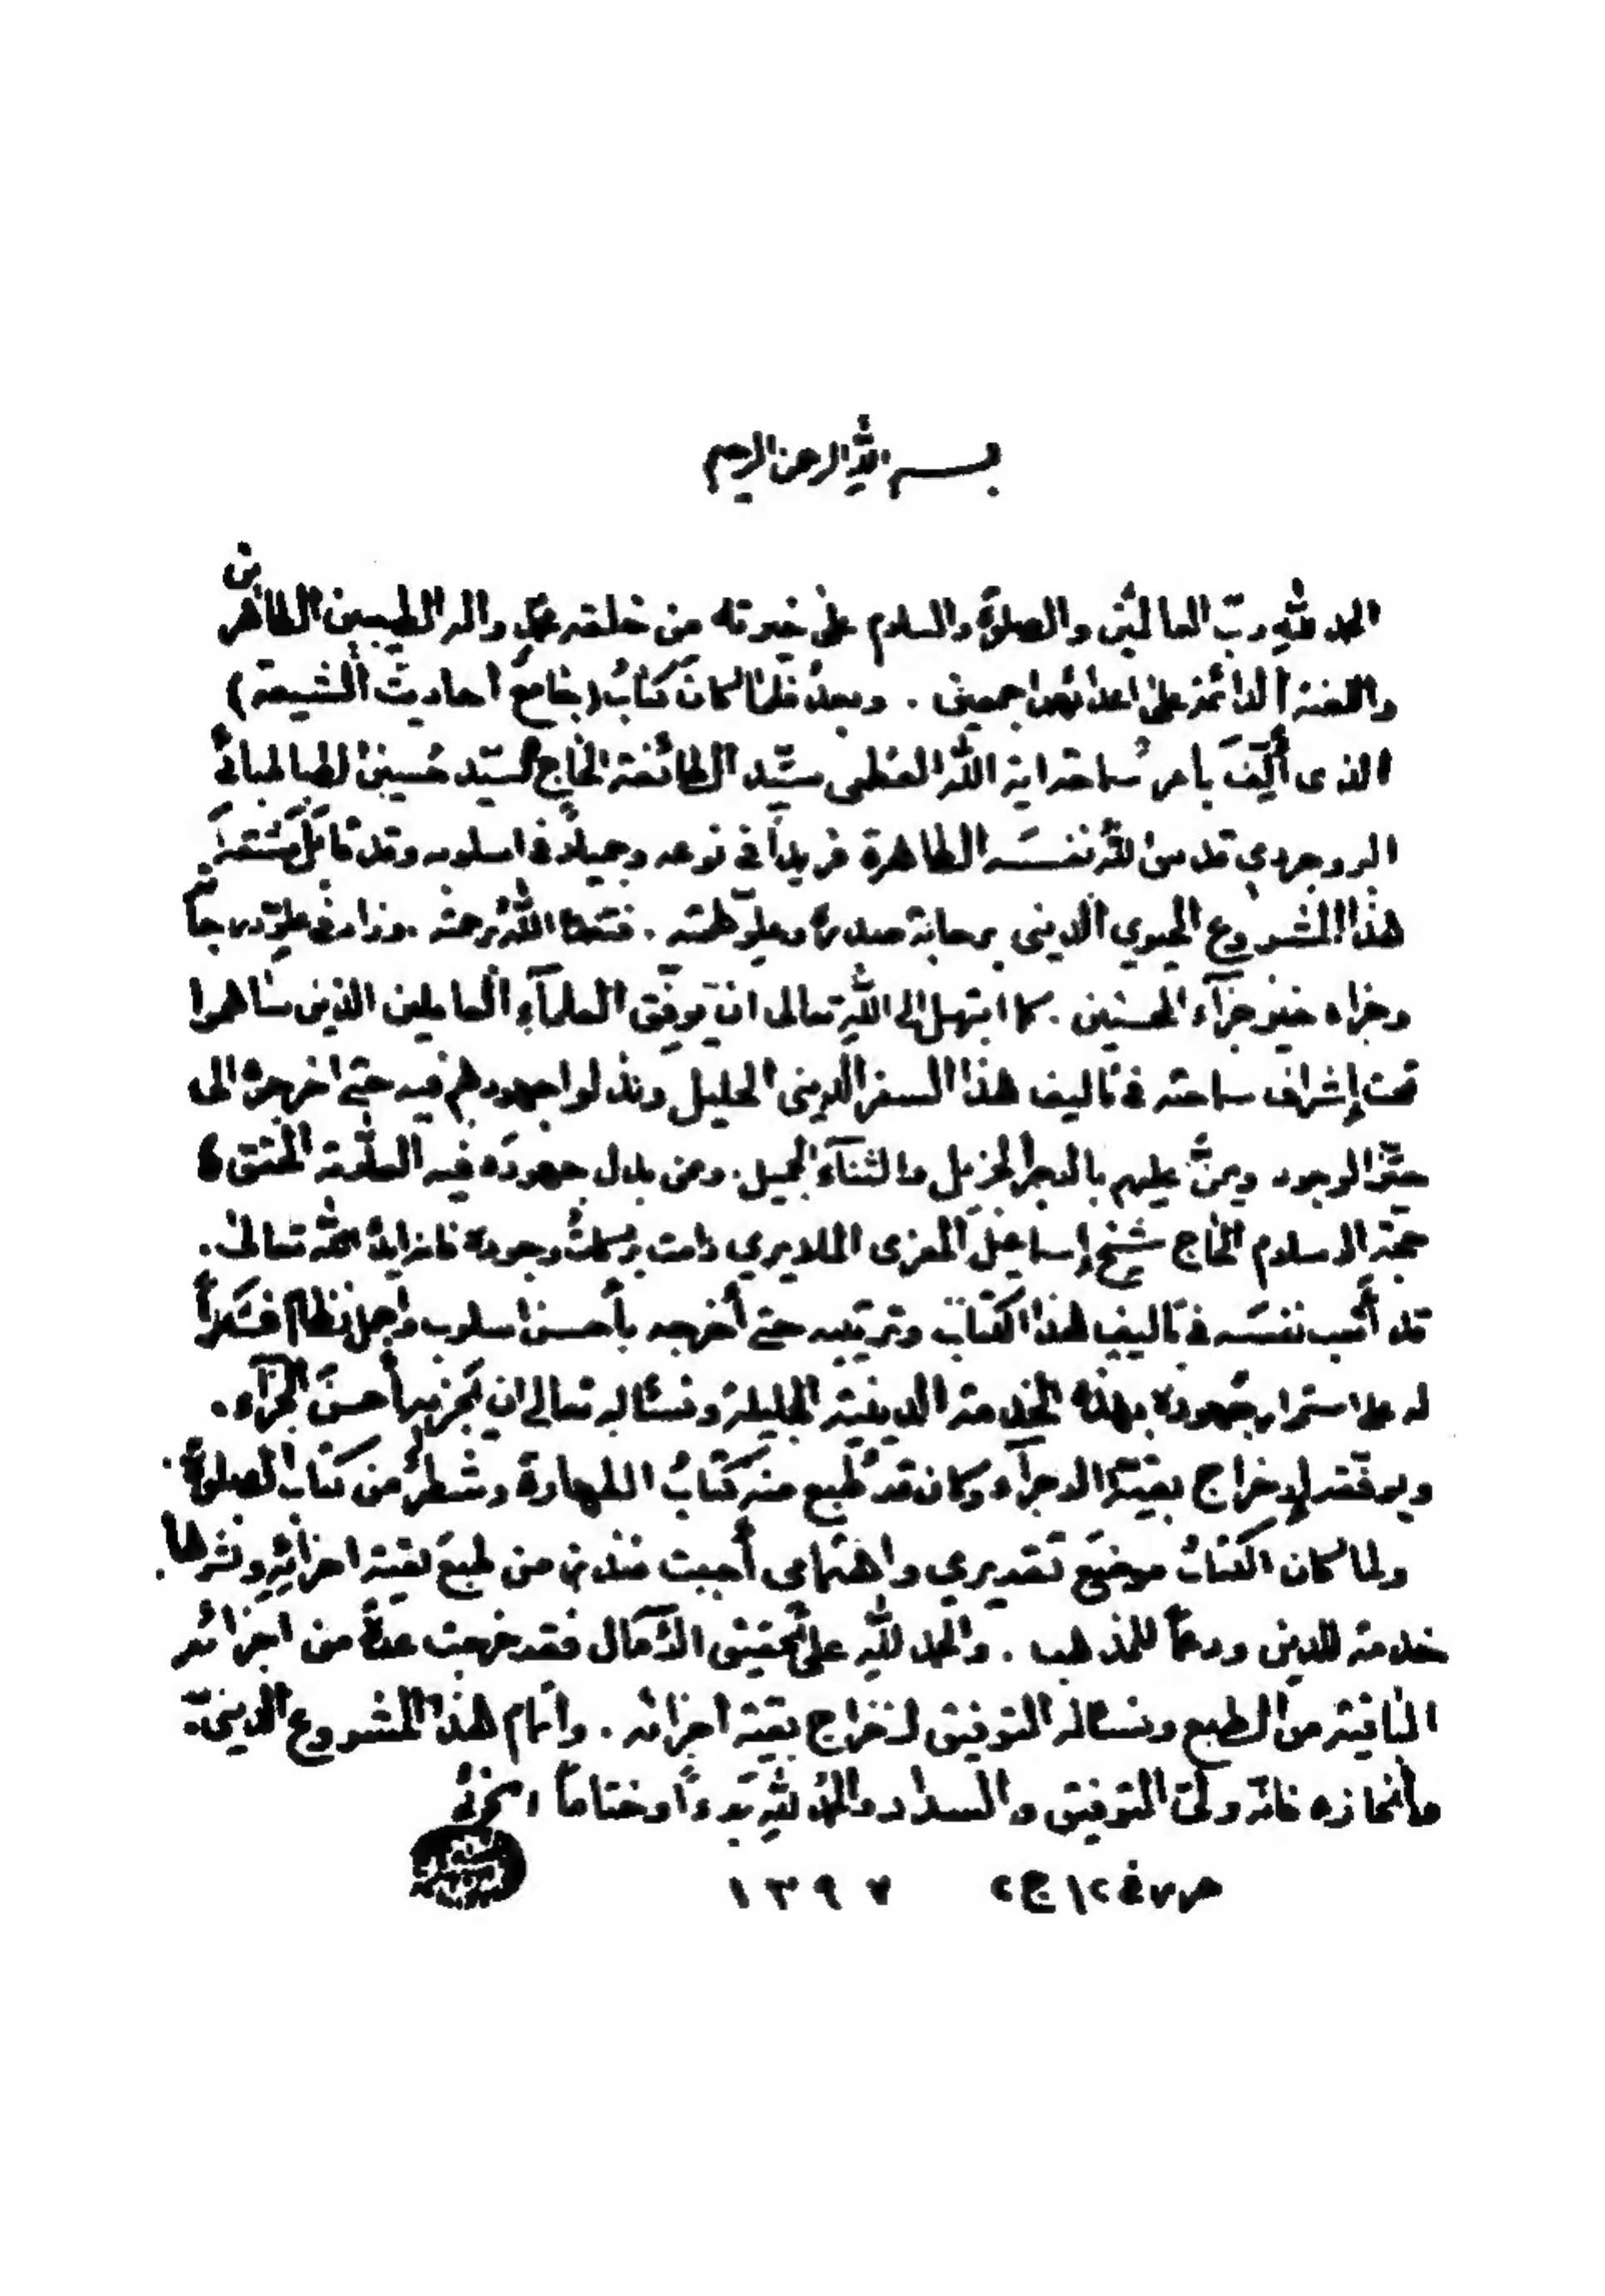 بسم الله الرحمن الرحيم
الحمد لله ربّ العالمين والصلوة والسلام على خيرته من خلقه محمّد واله الطيبين الطاهرين
واللعنة الدائمة على اعدائهم اجمعين . وبعد فلمّا كان كتابُ (جامع احاديث الشيعة)
الذى أُلّفَ بامر سماحة اية الله العظمى سيّد الطائفة الحاج السيّد حسين الطباطبائى
البروجردي قدس الله نفسَه الطاهرة فريداً فى نوعه وجميلاً فى اسلوبه وقد
هذا المشروع الحيوي الدينى برحابة صدره وعلوّ همّته . فتغمده الله برحمته . وزاد فى علوّ درجاته
وجزاه خير جزآء المحسنين . كما ابتهل الى الله تعالى ان يوفّق العلمآء العاملين الذين ساهموا
تحت إشراف سماحته فى تاليف هذا السفر الدينى الجليل وبذلوا جهودهم فيه حتى اخرجوه الى
حيّز الوجود ويمنّ عليهم بالاجر الجزيل والثنآء الجميل . وممن بذل جهوده فيه العلّامة المحقق
حجّة الاسلام الحاج شيخ إسماعيل المعزى الملايري دامت بركات وجوده فانه ايده الله تعالى .
قد أتعب نفسَه فى تاليف هذا الكتاب وترتيبه حتى أخرجه بأحسن اسلوب واجمل نظام فشكراً
له على استمرار جهوده بهذه الخدمة الدينية الجليلة ونسئاله تعالى ان يجزيه أحسن الجزآء .
ويوفّقه لإخراج بقيّة الاجزآء وكان قد طُبع منه كتابُ الطهارة وشطرٌ من كتاب الصلوة .
ولما كان الكتابُ موضعَ تقديري واهتمامي أحببت من طبع بقية اجزائه ونشرها .
خدمة للدين ودعماً للمذهب . والحمد لله على تحقيق الآمال فقد خرجت عدةٌ من اجزائه
الثانية من الطبع ونسئاله التوفيق لاخراج بقية اجزائه . واتمام هذا المشروع الدينىّ
وأنجازه فانّه ولىّ التوفيق والسداد والحمد لله بدءاً وختاماً الخوئى
فى ١٢ ج ٢ ١٣٩٧